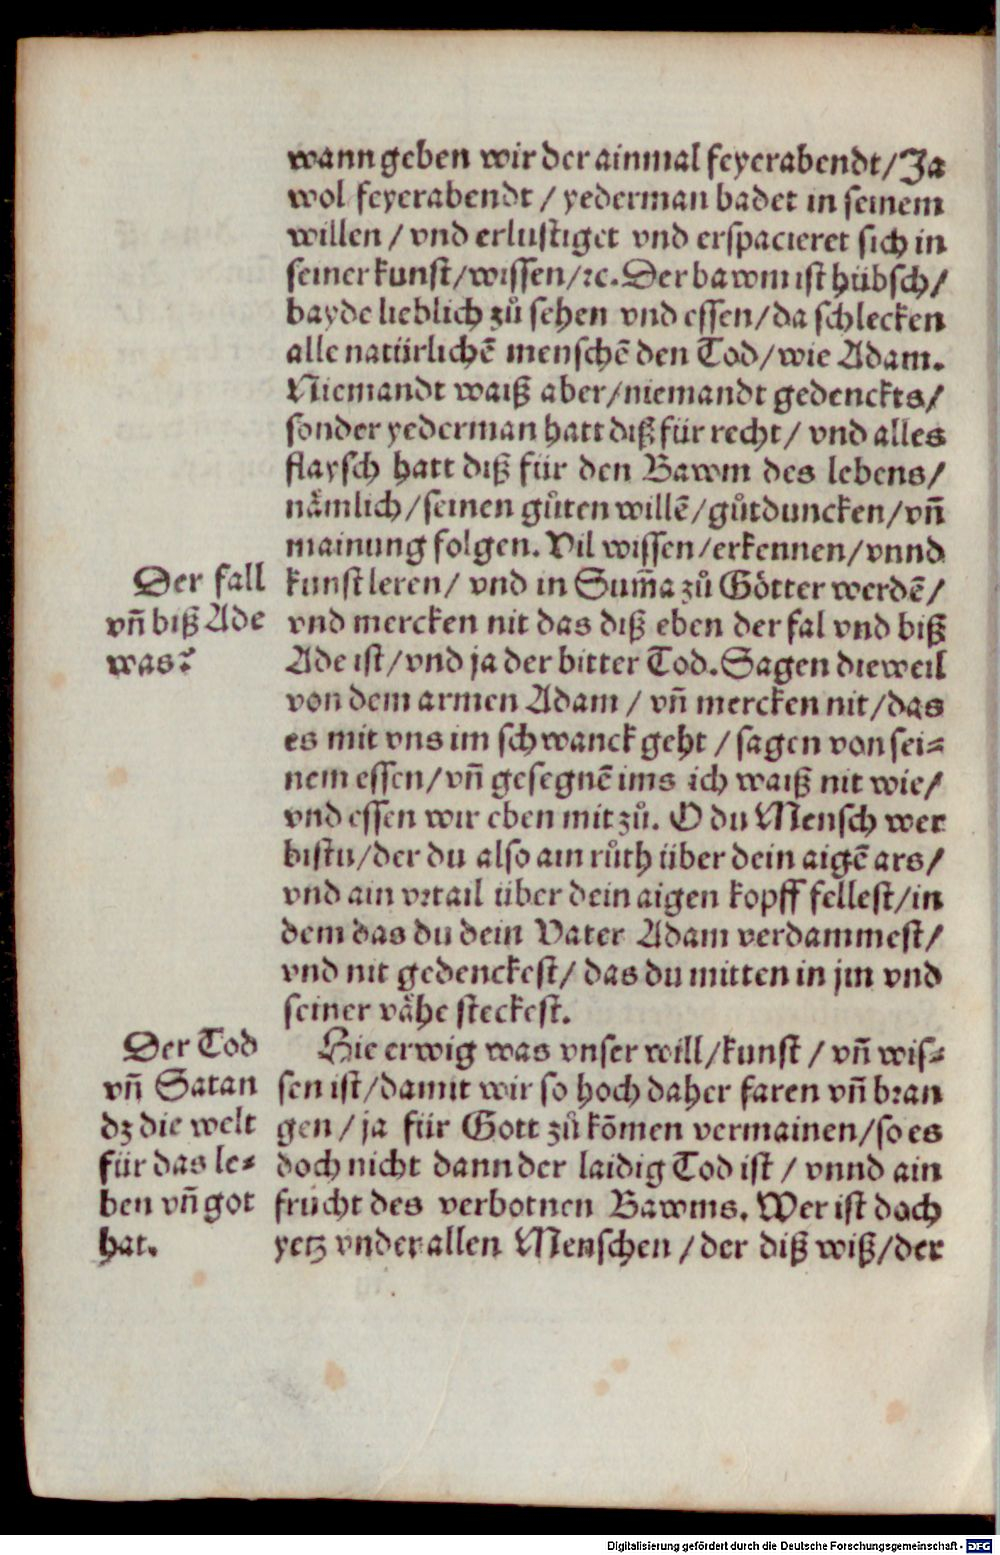 wann geben wir der ainmal feyerabendt/Ja
wol feyerabendt / yederman badet in seinem
willen / vnd erlustiget vnd erspacieret sich in
seiner kunst/wissen/ꝛc. Der bawm ist hübsch/
bayde lieblich zů sehen vnd essen/da schlecken
alle natürlichē menschē den Tod/wie Adam.
Niemandt waiß aber/niemandt gedenckts/
sonder yederman hatt diß für recht/ vnd alles
flaysch hatt diß für den Bawm des lebens/
nämlich/seinen gůten willē/gůtduncken/vñ
mainung folgen. Vil wissen/erkennen/vnnd
Der fall
vñ biß Ade
was?
kunst leren/ vnd in Sum̄a zů Götter werdē/
vnd mercken nit das diß eben der fal vnd biß
Ade ist/vnd ja der bitter Tod. Sagen dieweil
von dem armen Adam / vñ mercken nit/das
es mit vns im schwanck geht / sagen von sei⸗
nem essen/vñ gesegnē ims ich waiß nit wie/
vnd essen wir eben mit zů. O du Mensch wer
bistu/der du also ain růth über dein aigē ars/
vnd ain vꝛtail über dein aigen kopff fellest/in
dem das du dein Vater Adam verdammest/
vnd nit gedenckest/ das du mitten in jm vnd
seiner vähe steckest.
Der Tod
vñ Satan
dz die welt
für das le⸗
ben vñ got
hat.
Hie erwig was vnser will/kunst / vñ wis⸗
sen ist/damit wir so hoch daher faren vñ bꝛan
gen / ja für Gott zů kōmen vermainen/so es
doch nicht dann der laidig Tod ist / vnnd ain
frücht des verbotnen Bawms. Wer ist doch
yetz vnder allen Menschen / der diß wiß/der
Digitalisierung gefördert durch die Deutsche Forschungsgemeinschaft - DFG